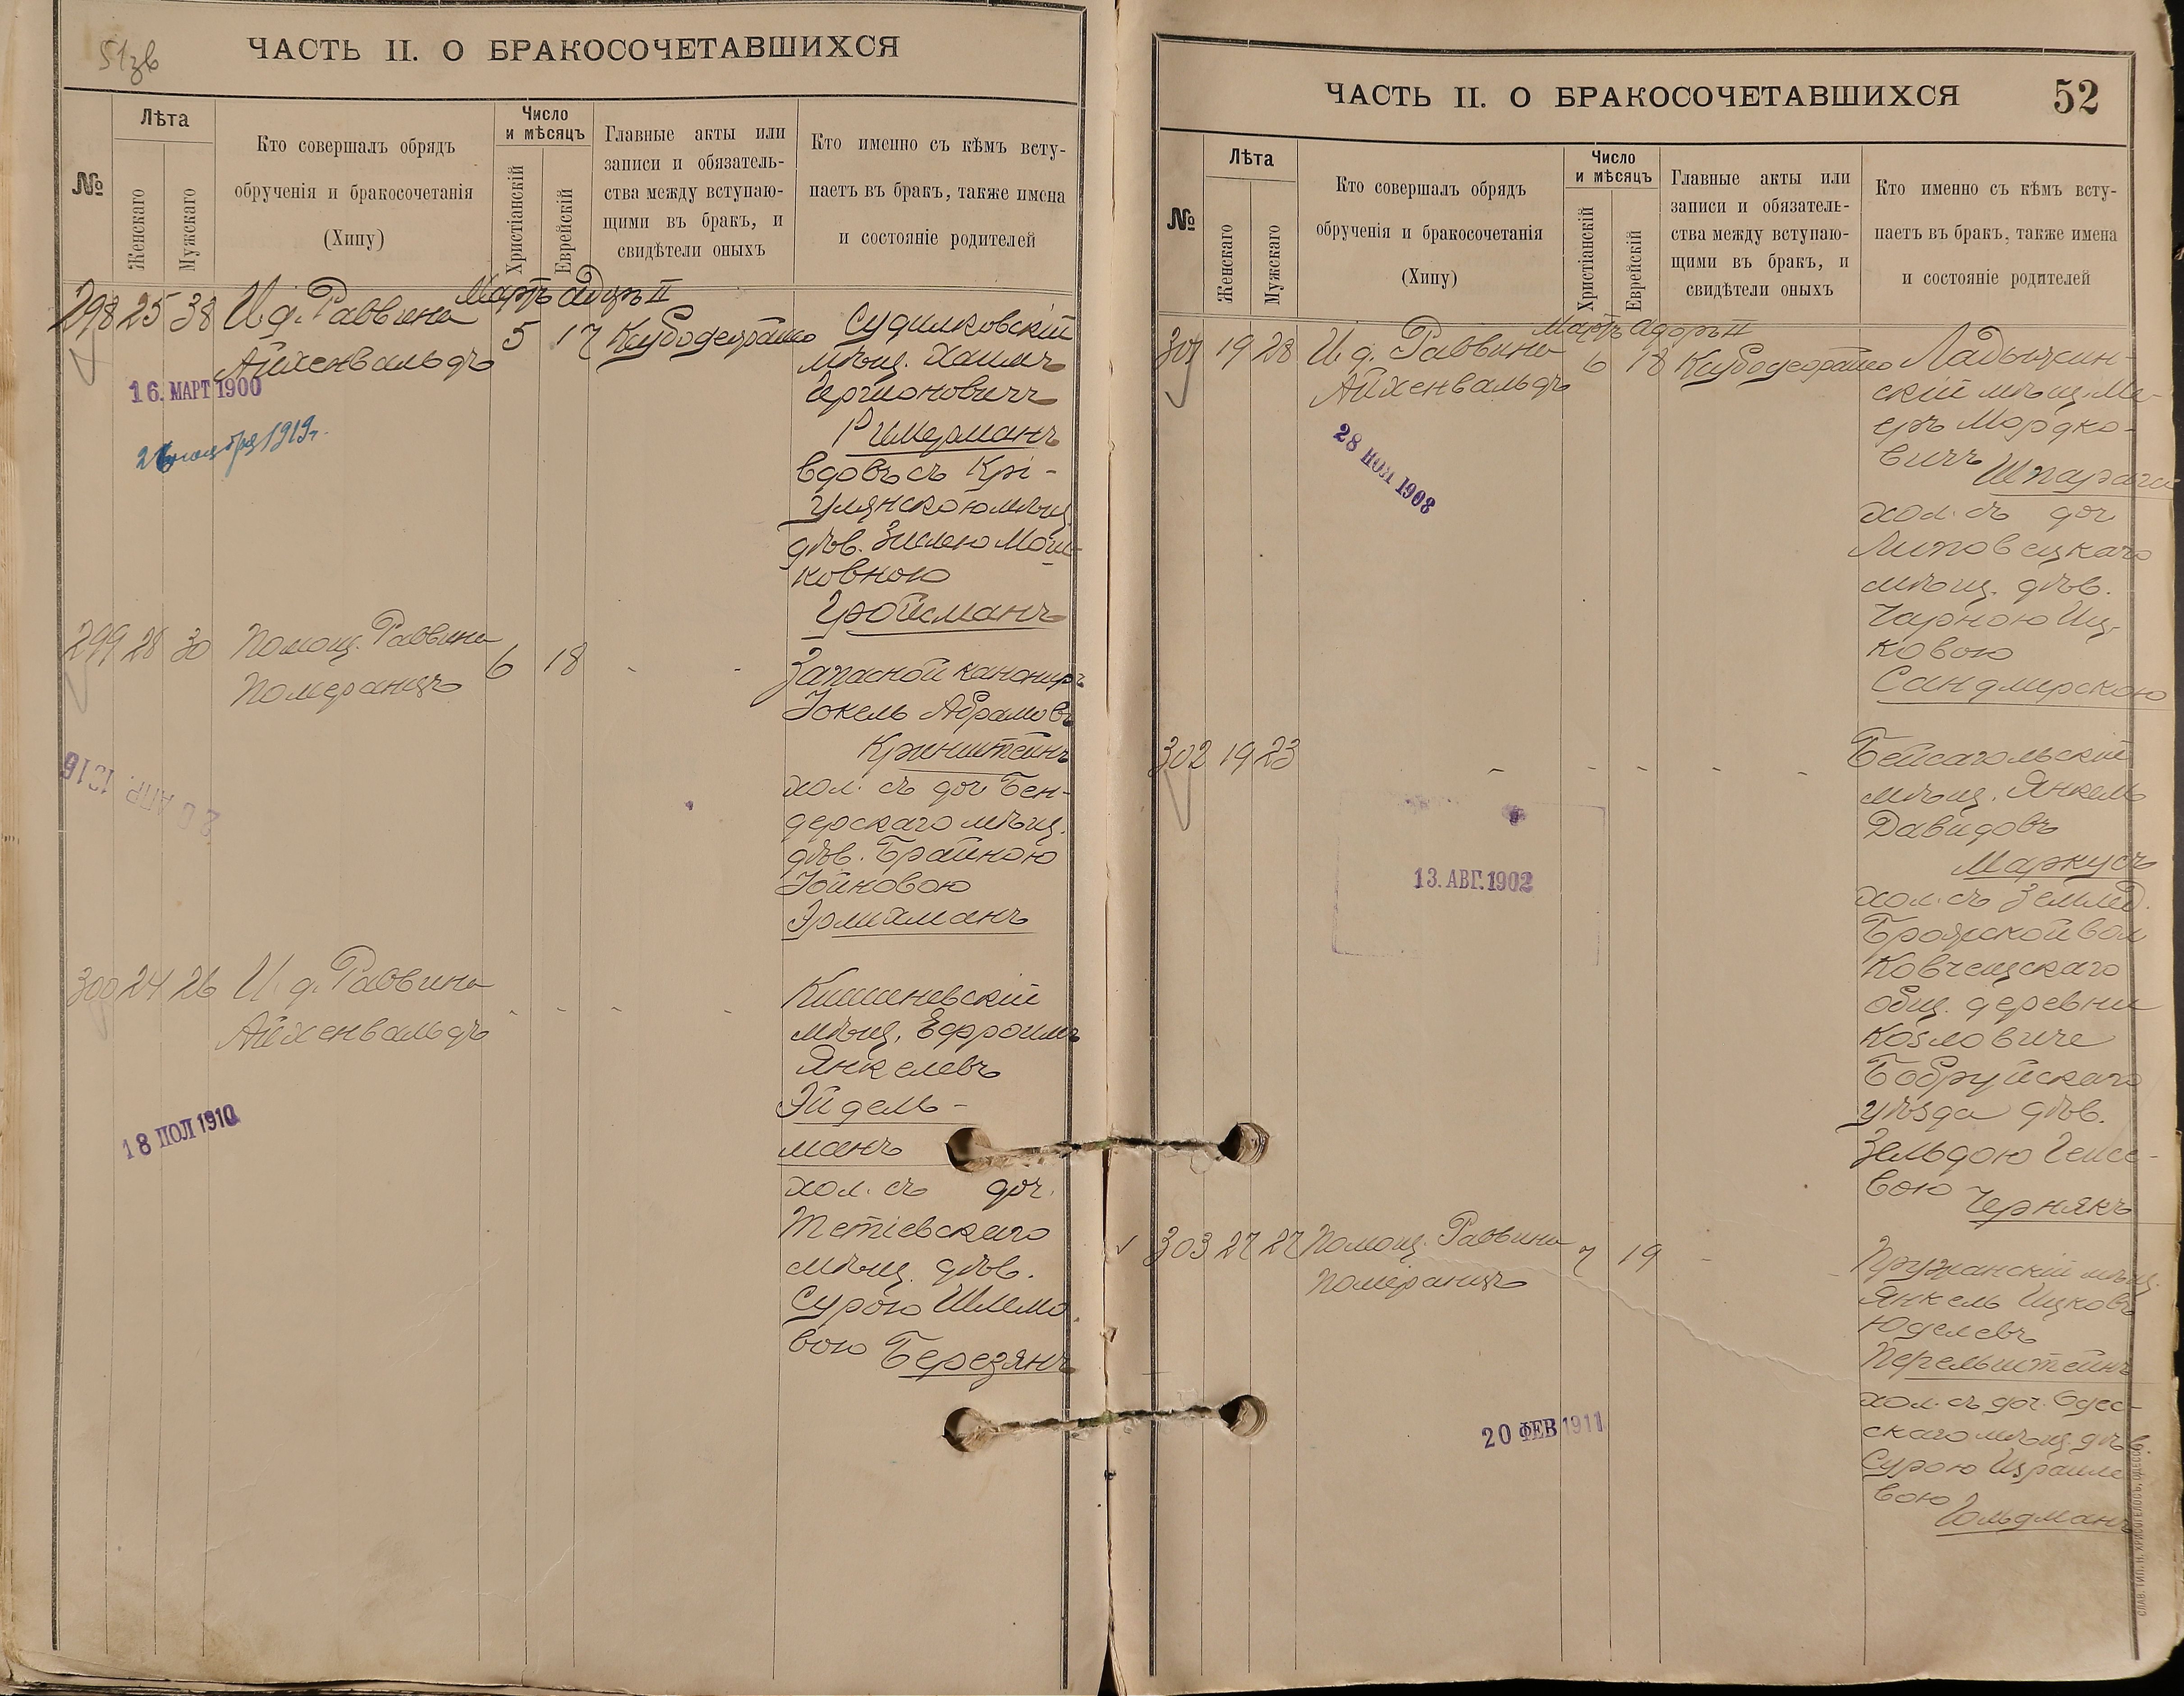 51зв
ЧАСТЬ II. О БРАКОСОЧЕТАВШИХСЯ
№
Лѣта
Женскаго
Мужскаго
Кто совершалъ обрядъ
обрученія и бракосочетанія
(Хипу)
Число
и мѣсяцъ
Христіанскій
Еврейскій
Главные акты или
записи и обязатель-
ства между вступаю-
щими въ бракъ, и
свидѣтели оныхъ
Кто именно съ кѣмъ всту-
паетъ въ бракъ, также имена
и состояніе родителей
Мартъ Адаръ II
298 25 38 И. д. Раввина
Айхенвальдъ
5 17
16. МАРТ 1900
1919г.
Судилковскій
мѣщ. Хаимъ
Римерманъ
вдовъ съ Крі-
улянскою мѣщ.
дѣв. Зислею Мош-
ковною
Гройсманъ
299 28 30 Помощ. Раввина
Померанцъ
6 18
20 АПР. 1916
Запасной канониръ
Іокель Абрамовъ
Кринштейнъ
хол. съ доч Бен-
дерскаго мѣщ.
дѣв. Брайною
Іойновою
Эрлихманъ
300 24 26 И. д. Раввина
Айхенвальдъ
18 ІЮЛ 1910
Кишиневскій
мѣщ. Ефроимъ
Янкелевъ
Эйдель-
манъ
хол. съ доч.
Тетіевскаго
мѣщ. дѣв.
Сурою Шлемо
вою Березянъ
ЧАСТЬ II. О БРАКОСОЧЕТАВШИХСЯ
52
№
Лѣта
Женскаго
Мужскаго
Кто совершалъ обрядъ
обрученія и бракосочетанія
(Хипу)
Число
и мѣсяцъ
Христіанскій
Еврейскій
Главные акты или
записи и обязатель-
ства между вступаю-
щими въ бракъ, и
свидѣтели оныхъ
Кто именно съ кѣмъ всту-
паетъ въ бракъ, также имена
и состояніе родителей
Мартъ Адаръ II
301 19 28 И. д. Раввина
Айхенвальдъ
6 18
28 НОЯ 1908
Ладыжин-
скій мѣщ. Ме-
еръ Мордко-
вичъ Шпарага
хол. съ доч
Липовецкаго
мѣщ. дѣв.
Чарною Иц-
ковою
Сандлерскою
302 19 23
13. АВГ. 1902
Бейсагольскій
мѣщ. Янкель
Давидовъ
Маркусъ
хол. съ землед.
вол
Ковчецскаго
общ. деревни
Козловиче
Бобруйскаго
уѣзда дѣв.
Зельдою
вою Чернякъ
303 27 27 Помощ. Раввина
Померанцъ
7 19
20 ФЕВ 1911
Пружанскій мѣщ.
Янкель Ицковъ
Юделевъ
Перельштейнъ
хол. съ доч. Одес-
скаго мѣщ. дѣв.
Сурою Израиле
вою
Гольдманъ
СЛАВ. ТИП. Н. ХРИСОГЕЛОСЪ, ОДЕССА.